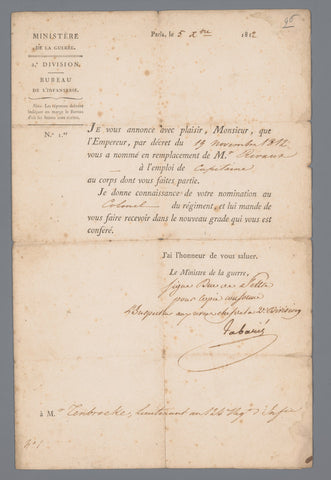 96
MINISTÈRE
DE LA GUERRE.
2.e DIVISION.
BUREAU
DE L'INFANTERIE.
Nota. Les réponses doivent
indiquer en marge le Bureau
d'où les lettres sont sorties.
N.o 1.er
Paris, le 5 Xbre 1812
JE vous annonce avec plaisir, Monsieur, que
l'Empereur, par décret du 19 novembre 1812,
vous a nommé en remplacement de M.r
à l'emploi de Capitaine
au corps dont vous faites partie.
Je donne connaissance de votre nomination au
Colonel du régiment, et lui mande de
vous faire recevoir dans le nouveau grade qui vous est
conféré.
J'ai l'honneur de vous saluer.
Le Ministre de la guerre,
signé Duc de Feltre
pour copie conforme
L'Inspecteur aux revues chef de la 2e Division
Tabarié
à M.r Tenbrocke, Lieutenant au 124 Regt d'Infie
N.o 1